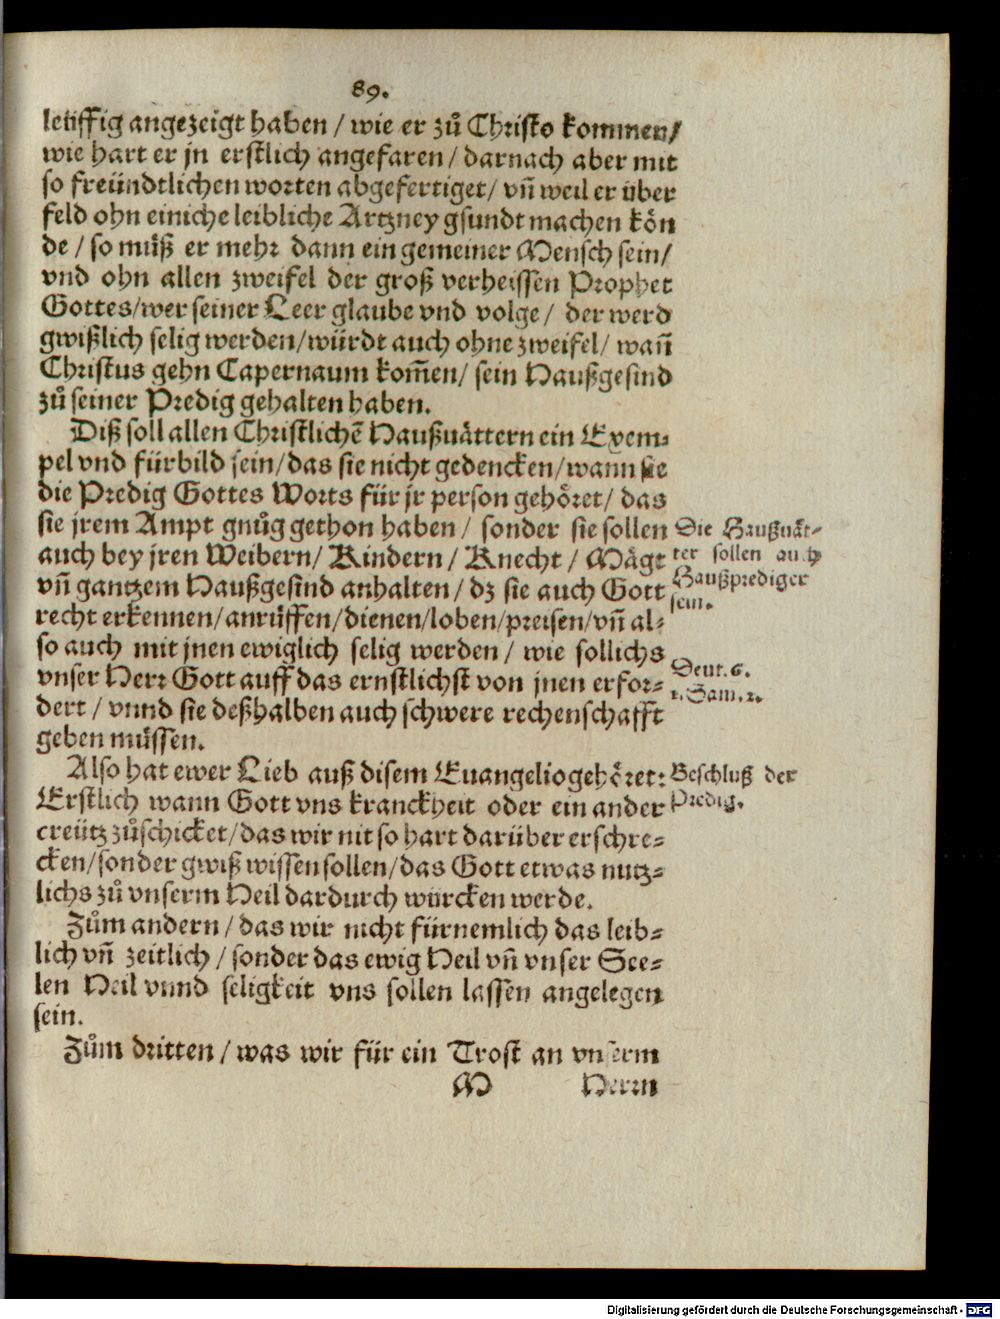 89.
leüffig angezeigt haben / wie er zů Christo kommen/
wie hart er jn erstlich angefaren / darnach aber mit
so freündtlichen worten abgefertiget / vñ weil er über
feld ohn einiche leibliche Artzney gsundt machen kön
de / so můß er mehr dann ein gemeiner Mensch sein/
vnd ohn allen zweifel der groß verheissen Prophet
Gottes/wer seiner Leer glaube vnd volge / der werd
gwißlich selig werden/würdt auch ohne zweifel/ wañ
Christus gehn Capernaum kom̃en/ sein Haußgesind
zů seiner Predig gehalten haben.
Diß soll allen Christlichẽ Haußuättern ein Exem-
pel vnd fürbild sein/das sie nicht gedencken/wann sie
die Predig Gottes Worts für jr person gehöret/ das
sie jrem Ampt gnůg gethon haben / sonder sie sollen
auch bey jren Weibern/ Kindern / Knecht / Mägt
vñ gantzem Haußgesind anhalten / dz sie auch Gott
recht erkennen/anrüffen/dienen/loben/preisen/vñ al-
so auch mit jnen ewiglich selig werden / wie sollichs
vnser Herr Gott auff das ernstlichst von jnen erfor-
dert / vnnd sie deßhalben auch schwere rechenschafft
geben müssen.
Die Haußuät-
ter sollen auch
Haußprediger
sein.
Deut. 6.
1. Sam. 2.
Also hat ewer Lieb auß disem Euangelio gehöret:
Erstlich wann Gott vns kranckheit oder ein ander
creütz zůschicket/das wir nit so hart darüber erschre-
cken/sonder gwiß wissen sollen/das Gott etwas nutz-
lichs zů vnserm Heil dardurch würcken werde.
Beschluß der
Predig.
Zům andern / das wir nicht fürnemlich das leib-
lich vñ zeitlich / sonder das ewig Heil vñ vnser See-
len Heil vnnd seligkeit vns sollen lassen angelegen
sein.
Zům dritten / was wir für ein Trost an vnserm
M Herrn
Digitalisierung gefördert durch die Deutsche Forschungsgemeinschaft - DFG